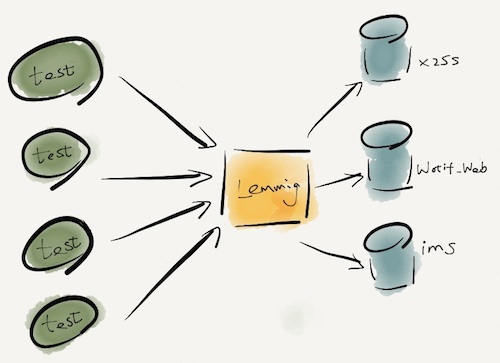 test
test
test
test
Lemmig
x255
Wotif_Web
ims